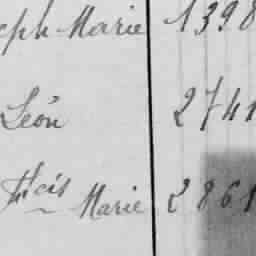 eph Marie 1398
Léon 2741
Fçis Marie 2861